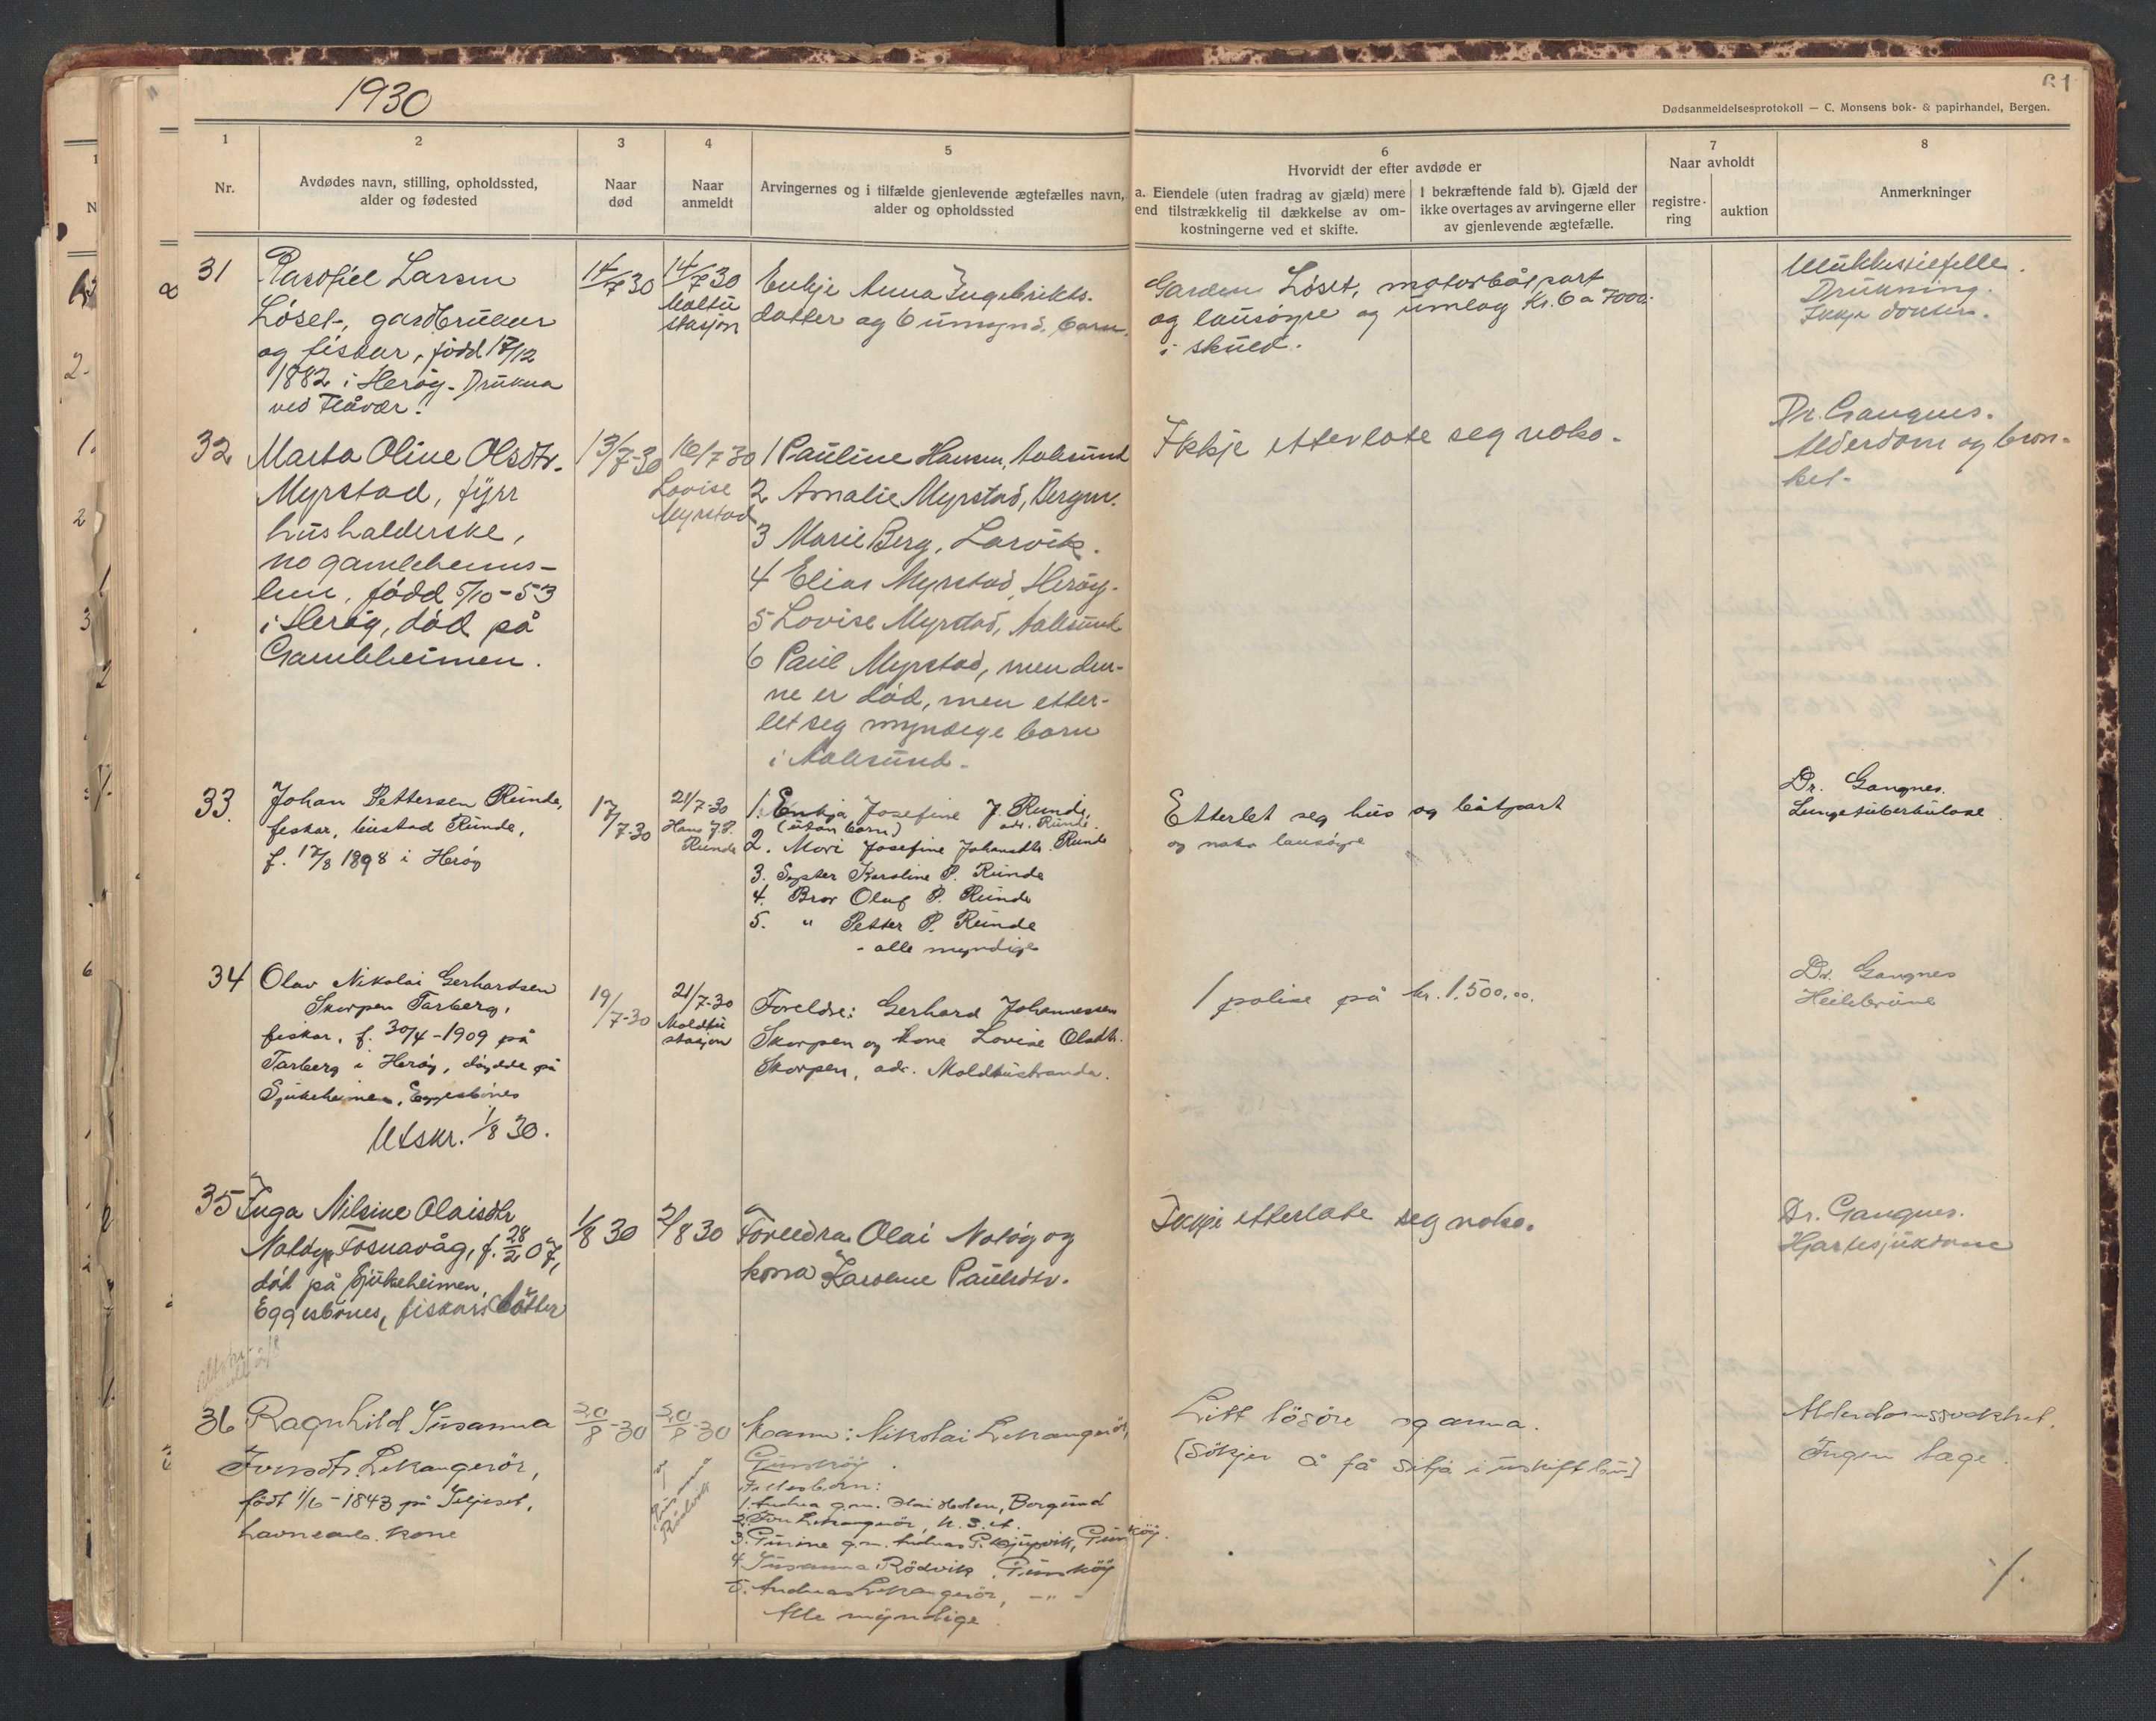 1930
61
Dødsanmeldelsesprotokoll — C. Monsens bok- & papirhandel, Bergen.
1
Nr.
2
Avdødes navn, stilling, opholdssted,
alder og fødested
3
Naar
død
4
Naar
anmeldt
5
Arvingernes og i tilfælde gjenlevende ægtefælles navn,
alder og opholdssted
6
Hvorvidt der efter avdøde er
a. Eiendele (uten fradrag av gjæld) mere
end tilstrækkelig til dækkelse av om-
kostningerne ved et skifte.
I bekræftende fald b). Gjæld der
ikke overtages av arvingerne eller
av gjenlevende ægtefælle.
7
Naar avholdt
registre-
ring
auktion
8
Anmerkninger
31
Larsen
Løset, gardbrukar
og fiskar, fødd 17/12
1882 i Herøy. Drukna
ved Flåvær.
14/7 30
14/7 30
Moltu
stasjon
Enkje Anna Ingebrikts-
datter og 6 umynd. barn.
Garden Løset, motorbåtpart
og lausøyre og umlag Kr. 6 a 7000.-
i skuld.
Ulukkestilfelle.
Drukning.
Ikkje doktor.
32
Marta Oline Olsdtr.
Myrstad, fyrr
hushalderske,
no gamleheims-
lem, fødd 5/10-53
i Herøy, død på
Gamleheimen.
13/7-30
16/7 30
Lovise
Myrstad
1 Pauline Hansen, Aalesund
2 Amalie Myrstad, Bergen.
3 Marie Berg, Larvik.
4 Elias Myrstad, Herøy.
5 Lovise Myrstad, Aalesund
6 Paul Myrstad, men den-
ne er død, men etter-
let seg myndige barn
i Aalesund.
Ikkje etterlate seg noko.
Dr. Gangnes.
Alderdom og bron-
kit.
33.
Johan Pettersen Runde,
fiskar, bustad Runde,
f. 17/8 1898 i Herøy
17/7-30
21/7-30
Hans J. P.
Runde
1. Enkja Josefine J. Runde,
(utan barn) adr. Runde.
2. Mori Josefine Johansdtr. Runde
3. Syster Karoline P. Runde
4. Bror Oluf P. Runde
5. " Petter P. Runde
- alle myndige
Etterlet seg hus og båtpart
og noko lausøyre
Dr. Gangnes.
Lungetuberkulose
34
Olav Nikolai Gerhardsen
Skorpen Tarberg,
fiskar, f. 30/4-1909 på
Tarberg i Herøy, døydde på
Sjukeheimen, Eggesbönes
Utskr. 1/8 30.
19/7-30
21/7-30
Moldtu
stasjon
Foreldre: Gerhard Johannessen
Skorpen og kone Lovise Olsdtr.
Skorpen, adr. Moldtustranda.
1 polise på kr. 1.500,00.
Dr. Gangnes
35
Inga Nilsine Olaisdtr
Notøy, Fosnavåg, f. 28/2 07,
død på Sjukeheimen,
Eggesbönes, fiskardotter
1/8 30
2/8 30
Foreldra Olai Notøy og
kona Karoline Paulsdtr.
Ikkje etterlate seg noko.
Dr. Gangnes.
Hjartesjukdom
36
Ragnhild Susanna
Iversdtr. Lekangerör,
födt 1/6-1843 på
havnearb. kone
20/8-30
20/8-30
Susanna
Rödvik
Mann: Nikolai Lekangerör,
Gurskøy.
Fellesborn:
1. Andrea g.m. Holen, Borgund
2. Iver Lekangerör, U.S.A.
3. Gurine g.m. Andreas P. Gurskøy.
4. Susanna Rödvik, Gurskøy
5. Andreas Lekangerör, -"-
Alle myndige
Litt lösöre og anna.
(Sökjer å få sitja i uskift bu)
Ingen lage.